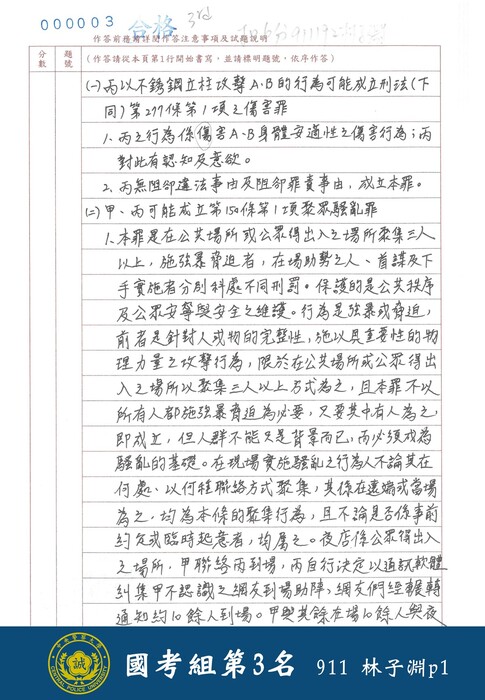 000003
合格 3rd
作答前應詳閱作答注意事項及試題說明
分數
題號
(作答請從本頁第1行開始書寫,並請標明題號,依序作答)
(一)丙以不銹鋼立柱攻擊A、B的行為可能成立刑法(下
同)第277條第1項之傷害罪
1、丙之行為係傷害A、B身體安適性之傷害行為;丙
對此有認知及意欲。
2、丙無阻卻違法事由及阻卻罪責事由,成立本罪。
(二)甲、丙可能成立第150條第1項聚眾騷亂罪
1、本罪是在公共場所或公眾得出入之場所聚集三人
以上,施強暴脅迫者,在場助勢之人、首謀及下
手實施者分別科處不同刑罰。保護的是公共秩序
及公眾安寧與安全之維護。行為是強暴或脅迫,
前者是針對人或物的完整性,施以具重要性的物
理力量之攻擊行為,限於在公共場所或公眾得出
入之場所以聚集三人以上方式為之,且本罪不以
所有人都施強暴脅迫為必要,只要其中有人為之,
即成立,但人群不能只是背景而已,而必須成為
騷亂的基礎。在現場實施騷亂之行為人不論其在
何處、以何種聯絡方式聚集,其係在遠端或當場
為之,均為本條的聚集行為,且不論是否係事前
約定或臨時起意者,均屬之。夜店係公眾得出入
之場所,甲聯絡丙到場,丙自行決定以通訊軟體
糾集甲不認識之網友到場助陣,網友們經輾轉
通知約10餘人到場。甲與其餘在場10餘人與夜
中央警察大學
CENTRAL POLICE UNIVERSITY
誠
國考組第3名 911 林子淵p1